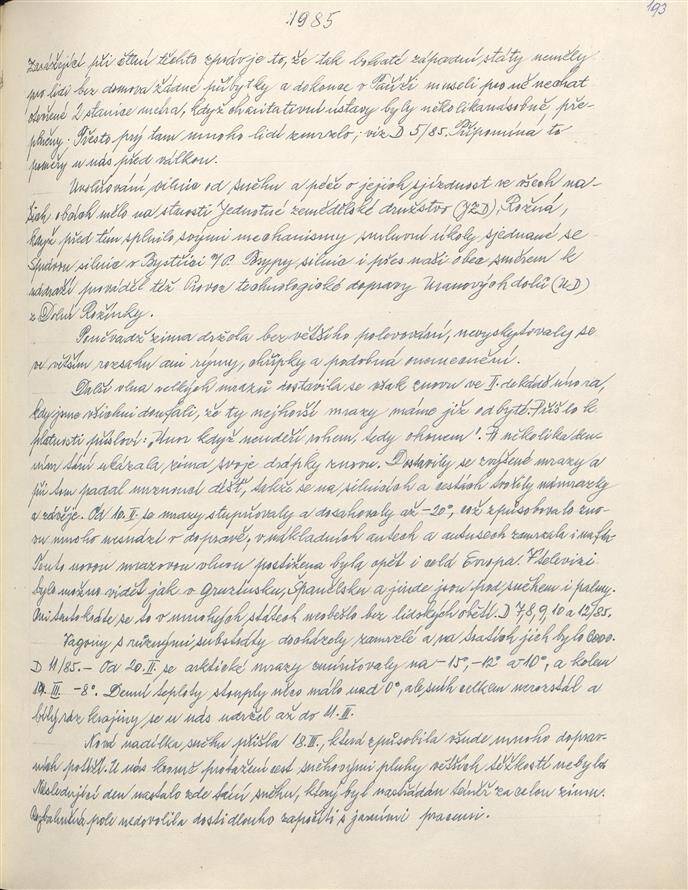 193
1985
Zarážející při čtení těchto zpráv je to, že tak bohaté západní státy neměly
pro lidi bez domova žádné příbytky a dokonce v Paříži museli pro ně nechat
otevřené 2 stanice metra, když charitativní ústavy byly několikanásobně pře-
plněny. Přesto prý tam mnoho lidí zmrzlo; viz D 5/85. Připomíná to
poměry u nás před válkou.
Uvolňování silnic od sněhu a péče o jejich sjízdnost ve všech na-
šich obcích mělo na starosti Jednotné zemědělské družstvo (JZD), Rožná,
když před tím splnilo svými mechanismy smluvní úkoly sjednané se
Správou silnic v Bystřici n/P. Posypy silnic i přes naši obec směrem k
nádraží prováděl též Provoz technologické dopravy Uranových dolů (UD)
z Dolní Rožínky.
Poněvadž zima držela bez většího polevování, nevyskytovaly se
ve větším rozsahu ani rýmy, chřipky a podobná onemocnění.
Další vlna velkých mrazů dostavila se však znovu ve II. dekádě února,
kdy jsme všichni doufali, že ty nejhorší mrazy máme již odbyté. Přišlo k
platnosti přísloví: "Únor když neudeří rohem, tedy ohonem". Po několika den-
ním tání ukázala zima svoje drápky znovu. Dostavily se zvýšené mrazy a
při tom padal mrznoucí déšť, takže se na silnicích a cestách tvořily námrazky
a závěje. Od 10. II. se mrazy stupňovaly a dosahovaly až -20°, což způsobovalo zno-
vu mnoho nesnází v dopravě, v nákladních autech a autobusech zamrzala i nafta.
Touto novou mrazovou vlnou postižena byla opět i celá Evropa. V televizi
bylo možno vidět jak v Gruzínsku, Španělsku a jinde jsou pod sněhem i palmy.
Ani tentokráte se to v mnohých státech neobešlo bez lidských obětí. D 7,8,9,10 a 12/85.
Vagony s různými substráty docházely zamrzlé a na tratích jich bylo 6000.
D 11/85. - Od 20. II. se arktické mrazy zmírňovaly na -15°, -12° a 10°, a kolem
19. III. -8°. Denní teploty stouply něco málo nad 0°, ale sníh celkem nerozstál a
bílý ráz krajiny se u nás udržel až do 11. III.
Nová nadílka sněhu přišla 18. III., která způsobila všude mnoho doprav-
ních potíží. U nás kromě protažení cest sněhovými pluhy větších těžkostí nebylo.
Následující den nastalo zde tání sněhu, který byl nastřádán téměř za celou zimu.
Rozbahněná pole nedovolila dosti dlouho započíti s jarními pracemi.